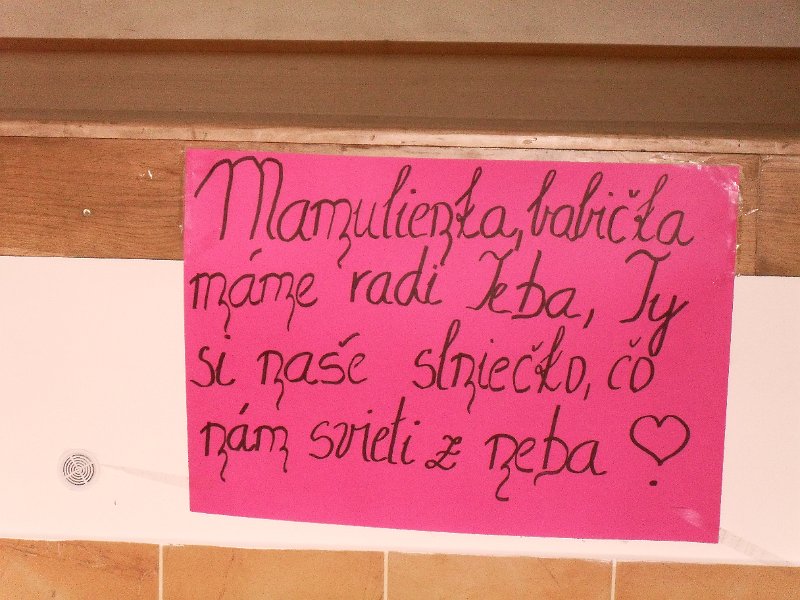 Mamulienka, babička
máme radi Teba, Ty
si naše slniečko, čo
nám svieti z neba ♡